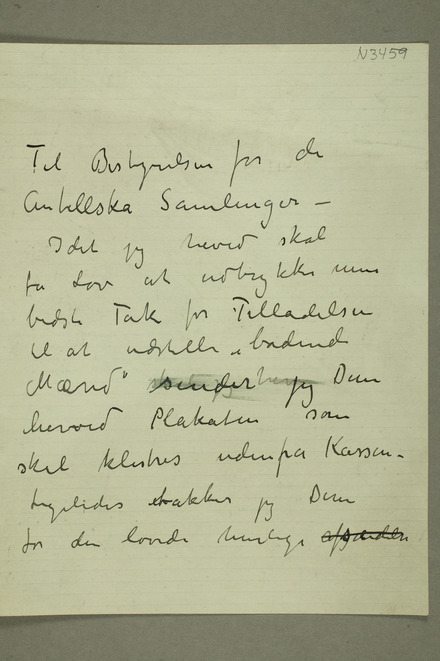 N3459
Til Bestyrelsen for de
Antellska Samlinger –
Idet jeg herved skal
få Lov at udtrykke min
bedste Tak for Tilladelsen
til at udstille „badende
Mænd" sender jeg Dem
herved Plakaten som
skal klistres udenpå Kassen –
ligeledes takker jeg Dem
for den lovede hurtige afsenden